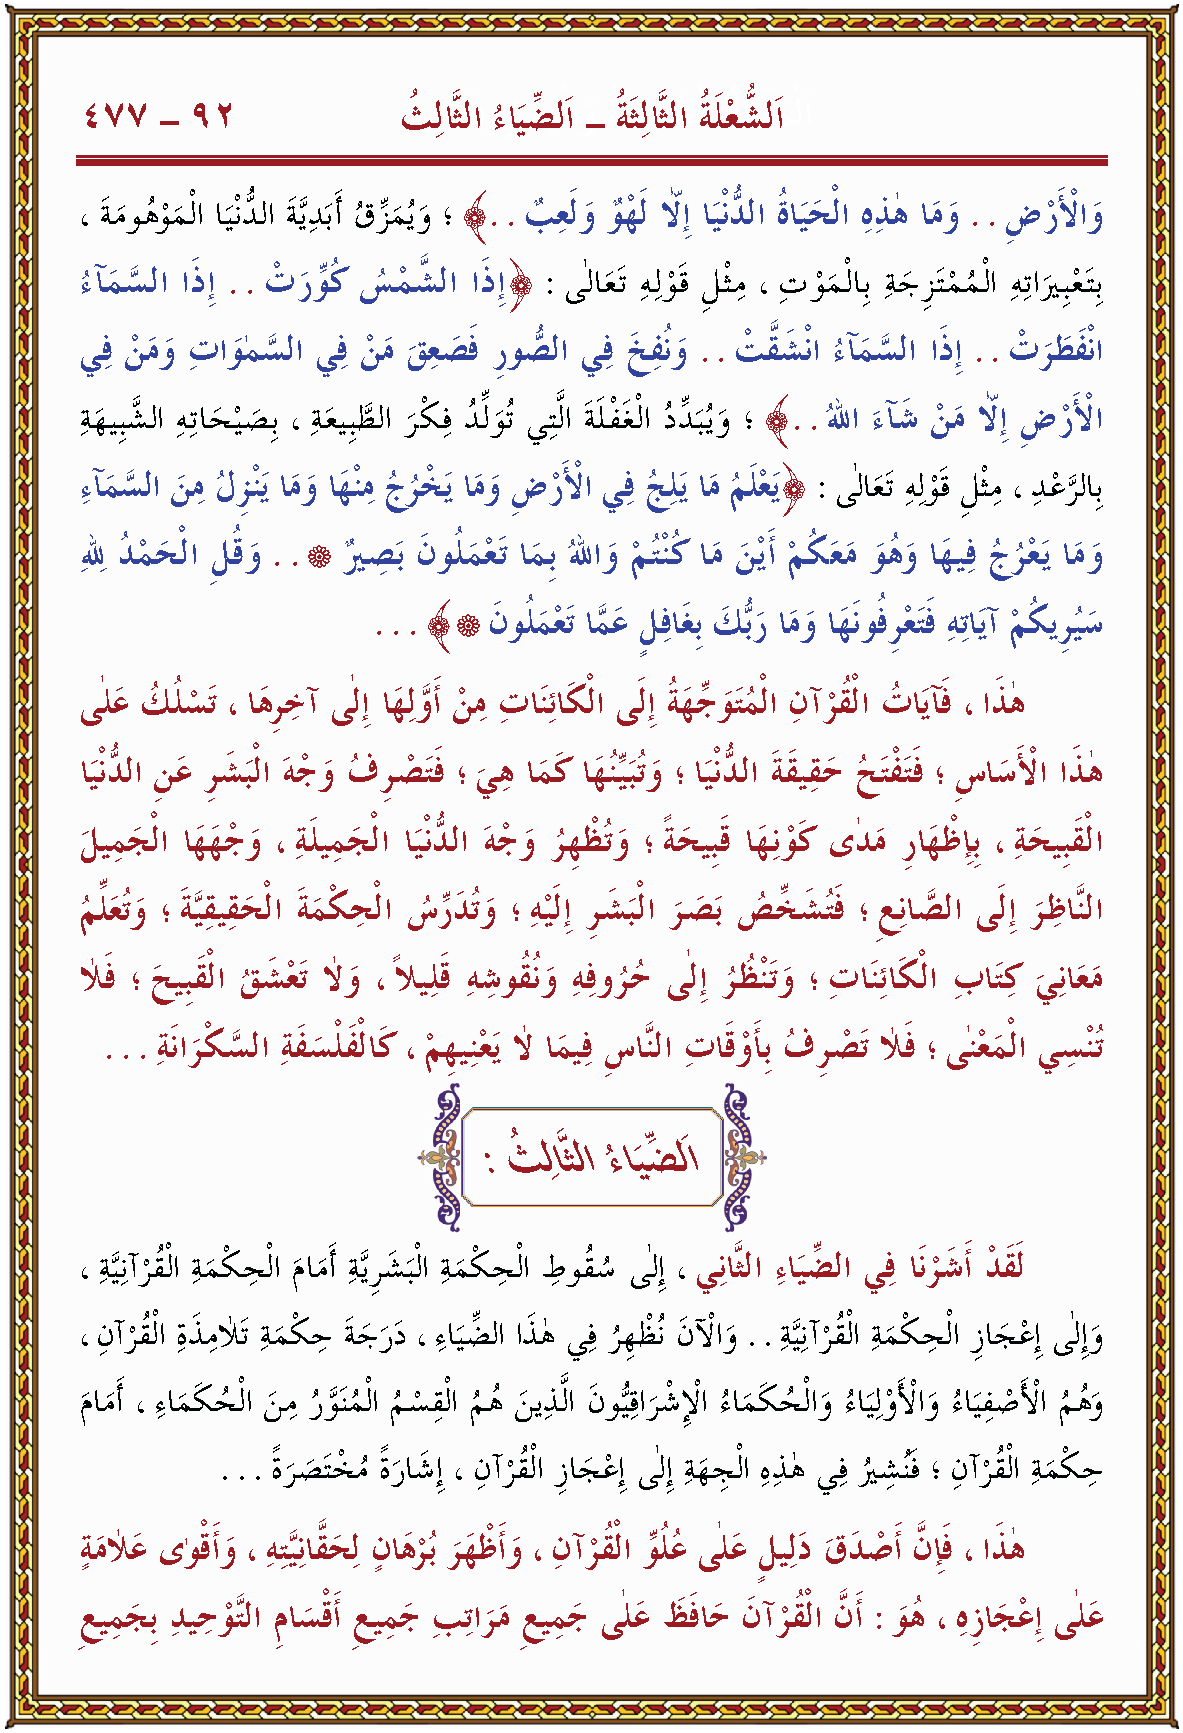 اَلشُّعْلَةُ الثَّالِثَةُ ــ اَلضِّيَاءُ الثَّالِثُ ٩٢ ــ ٤٧٧
وَالْأَرْضِ . . وَمَا هٰذِهِ الْحَيَاةُ الدُّنْيَا اِلَّا لَهْوٌ وَلَعِبٌ . .﴾ ؛ وَيُمَزِّقُ أَبَدِيَّةَ الدُّنْيَا الْمَوْهُومَةَ ،
بِتَعْبِيرَاتِهِ الْمُمْتَزِجَةِ بِالْمَوْتِ ، مِثْلِ قَوْلِهِ تَعَالٰى : ﴿إِذَا الشَّمْسُ كُوِّرَتْ . . إِذَا السَّمَآءُ
انْفَطَرَتْ . . إِذَا السَّمَآءُ انْشَقَّتْ . . وَنُفِخَ فِي الصُّورِ فَصَعِقَ مَنْ فِي السَّمٰوَاتِ وَمَنْ فِي
الْأَرْضِ إِلَّا مَنْ شَآءَ اللهُ . .﴾ ؛ وَيُبَدِّدُ الْغَفْلَةَ الَّتِي تُوَلِّدُ فِكْرَ الطَّبِيعَةِ ، بِصَيْحَاتِهِ الشَّبِيهَةِ
بِالرَّعْدِ ، مِثْلِ قَوْلِهِ تَعَالٰى : ﴿يَعْلَمُ مَا يَلِجُ فِي الْأَرْضِ وَمَا يَخْرُجُ مِنْهَا وَمَا يَنْزِلُ مِنَ السَّمَآءِ
وَمَا يَعْرُجُ فِيهَا وَهُوَ مَعَكُمْ أَيْنَ مَا كُنْتُمْ وَاللهُ بِمَا تَعْمَلُونَ بَصِيرٌ ۞ . . وَقُلِ الْحَمْدُ لِلهِ
سَيُرِيكُمْ آيَاتِهِ فَتَعْرِفُونَهَا وَمَا رَبُّكَ بِغَافِلٍ عَمَّا تَعْمَلُونَ ۞﴾ . . .
هٰذَا ، فَآيَاتُ الْقُرْآنِ الْمُتَوَجِّهَةُ إِلَى الْكَائِنَاتِ مِنْ أَوَّلِهَا إِلٰى آخِرِهَا ، تَسْلُكُ عَلٰى
هٰذَا الْأَسَاسِ ؛ فَتَفْتَحُ حَقِيقَةَ الدُّنْيَا ؛ وَتُبَيِّنُهَا كَمَا هِيَ ؛ فَتَصْرِفُ وَجْهَ الْبَشَرِ عَنِ الدُّنْيَا
الْقَبِيحَةِ ، بِإِظْهَارِ مَدٰى كَوْنِهَا قَبِيحَةً ؛ وَتُظْهِرُ وَجْهَ الدُّنْيَا الْجَمِيلَةِ ، وَجْهَهَا الْجَمِيلَ
النَّاظِرَ إِلَى الصَّانِعِ ؛ فَتُشَخِّصُ بَصَرَ الْبَشَرِ إِلَيْهِ ؛ وَتُدَرِّسُ الْحِكْمَةَ الْحَقِيقِيَّةَ ؛ وَتُعَلِّمُ
مَعَانِيَ كِتَابِ الْكَائِنَاتِ ؛ وَتَنْظُرُ إِلٰى حُرُوفِهِ وَنُقُوشِهِ قَلِيلًا ، وَلَا تَعْشَقُ الْقَبِيحَ ؛ فَلَا
تُنْسِي الْمَعْنٰى ؛ فَلَا تَصْرِفُ بِأَوْقَاتِ النَّاسِ فِيمَا لَا يَعْنِيهِمْ ، كَالْفَلْسَفَةِ السَّكْرَانَةِ . . .
اَلضِّيَاءُ الثَّالِثُ :
لَقَدْ أَشَرْنَا فِي الضِّيَاءِ الثَّانِي ، إِلٰى سُقُوطِ الْحِكْمَةِ الْبَشَرِيَّةِ أَمَامَ الْحِكْمَةِ الْقُرْآنِيَّةِ ،
وَإِلٰى إِعْجَازِ الْحِكْمَةِ الْقُرْآنِيَّةِ . . وَالْآنَ نُظْهِرُ فِي هٰذَا الضِّيَاءِ ، دَرَجَةَ حِكْمَةِ تَلَامِذَةِ الْقُرْآنِ ،
وَهُمُ الْأَصْفِيَاءُ وَالْأَوْلِيَاءُ وَالْحُكَمَاءُ الْإِشْرَاقِيُّونَ الَّذِينَ هُمُ الْقِسْمُ الْمُنَوَّرُ مِنَ الْحُكَمَاءِ ، أَمَامَ
حِكْمَةِ الْقُرْآنِ ؛ فَنُشِيرُ فِي هٰذِهِ الْجِهَةِ إِلٰى إِعْجَازِ الْقُرْآنِ ، إِشَارَةً مُخْتَصَرَةً . . .
هٰذَا ، فَإِنَّ أَصْدَقَ دَلِيلٍ عَلٰى عُلُوِّ الْقُرْآنِ ، وَأَظْهَرَ بُرْهَانٍ لِحَقَّانِيَّتِهِ ، وَأَقْوٰى عَلَامَةٍ
عَلٰى إِعْجَازِهِ ، هُوَ : أَنَّ الْقُرْآنَ حَافَظَ عَلٰى جَمِيعِ مَرَاتِبِ جَمِيعِ أَقْسَامِ التَّوْحِيدِ بِجَمِيعِ